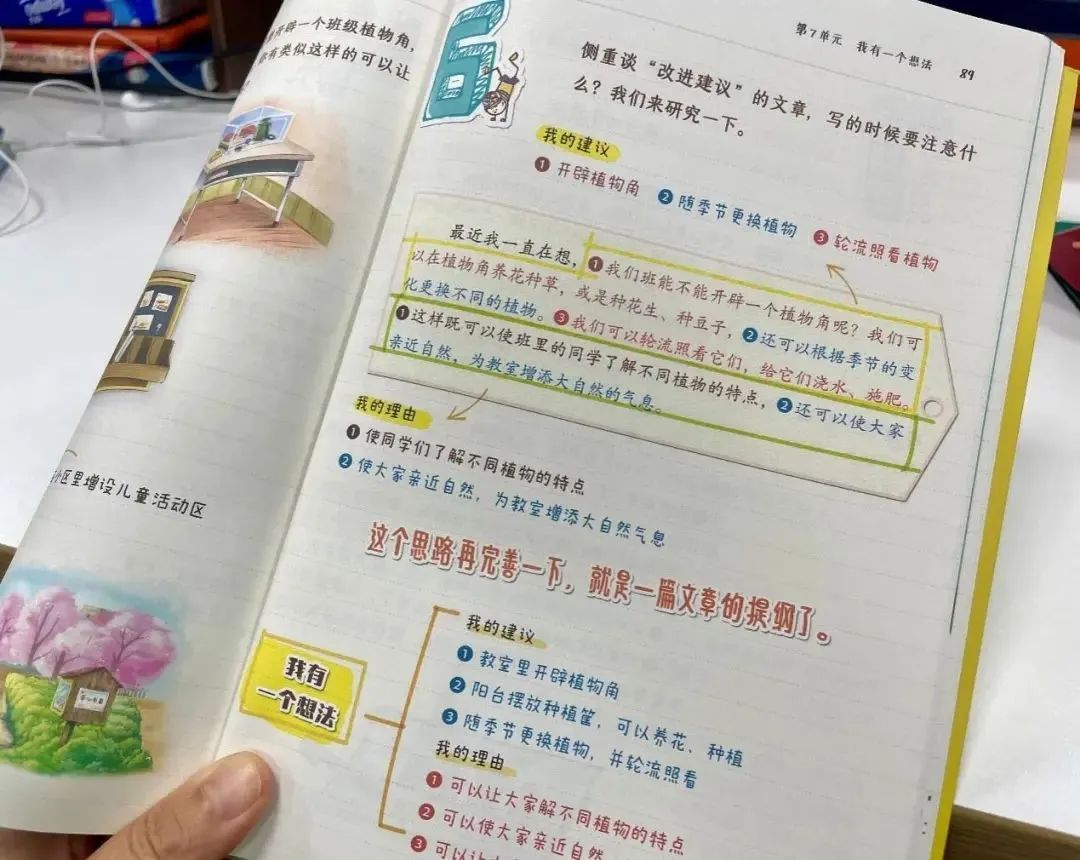 开辟一个班级植物角,
有类似这样的可以让
小区里增设儿童活动区
第7单元 我有一个想法 89
6
侧重谈“改进建议”的文章,写的时候要注意什
么?我们来研究一下。
我的建议
❶ 开辟植物角 ❷ 随季节更换植物 ❸ 轮流照看植物
最近我一直在想,❶我们班能不能开辟一个植物角呢?我们可
以在植物角养花种草,或是种花生、种豆子,❷还可以根据季节的变
化更换不同的植物。❸我们可以轮流照看它们,给它们浇水、施肥。
❶这样既可以使班里的同学了解不同植物的特点,❷还可以使大家
亲近自然,为教室增添大自然的气息。
我的理由
❶ 使同学们了解不同植物的特点
❷ 使大家亲近自然,为教室增添大自然气息
这个思路再完善一下,就是一篇文章的提纲了。
我有
一个想法
我的建议
❶ 教室里开辟植物角
❷ 阳台摆放种植筐,可以养花、种植
❸ 随季节更换植物,并轮流照看
我的理由
❶ 可以让大家解不同植物的特点
❷ 可以使大家亲近自然
❸ 可以让